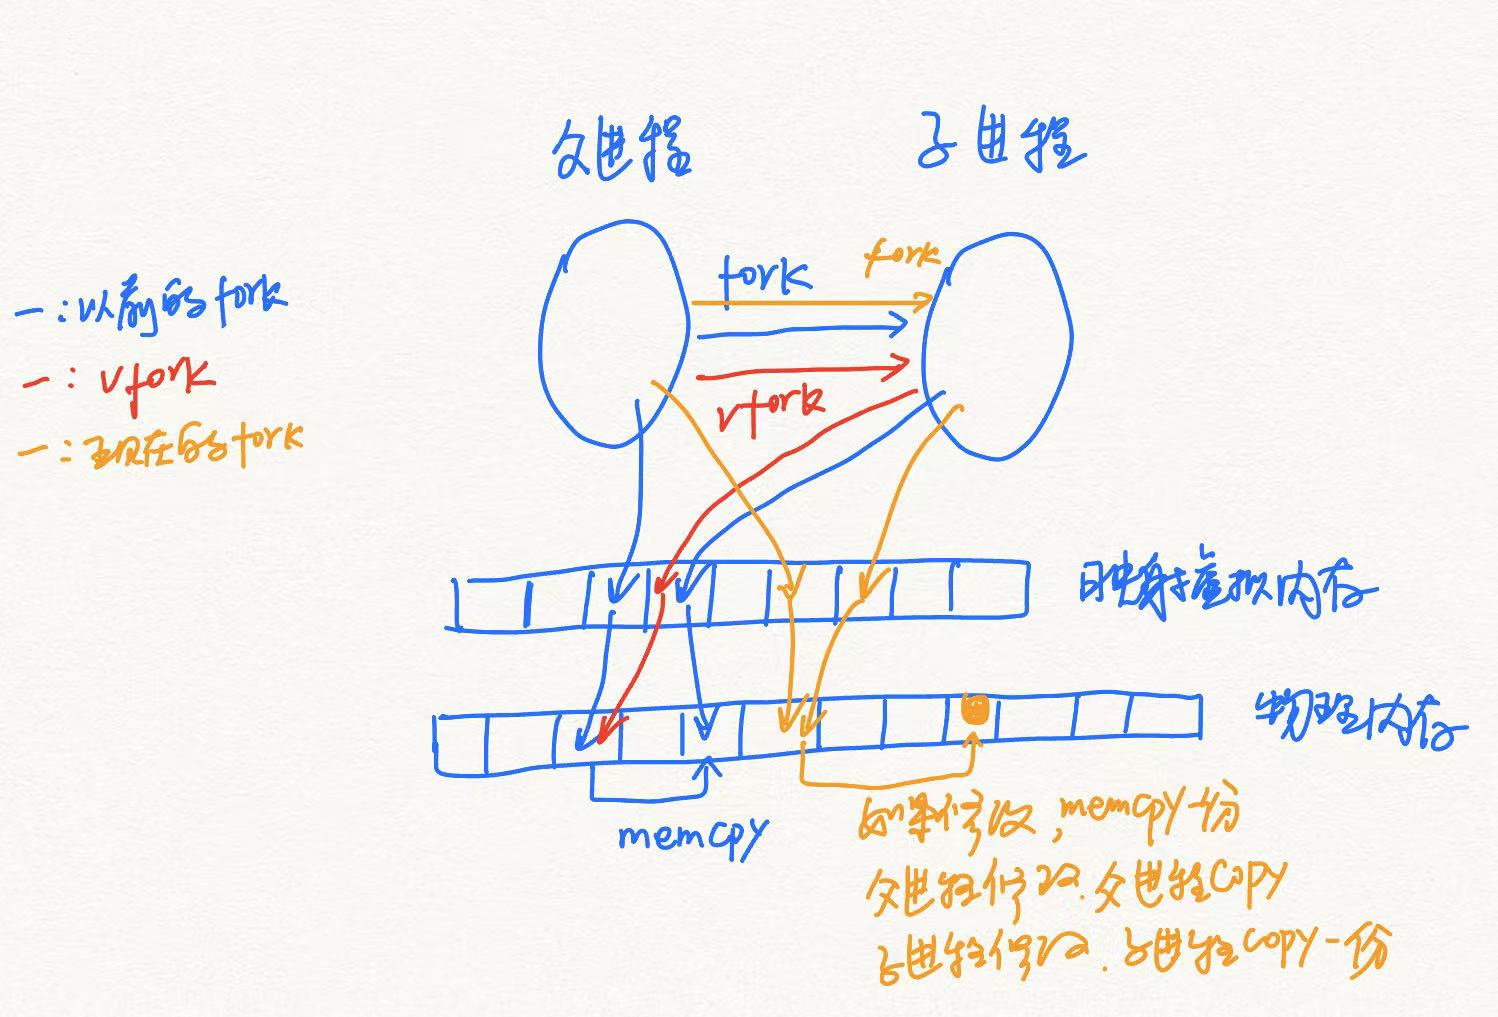 父进程
子进程
fork
fork
一:以前的fork
vfork
一:vfork
一:现在的fork
映射虚拟内存
物理内存
memcpy
如果修改,memcpy一份
父进程修改.父进程copy
子进程修改.子进程copy一份